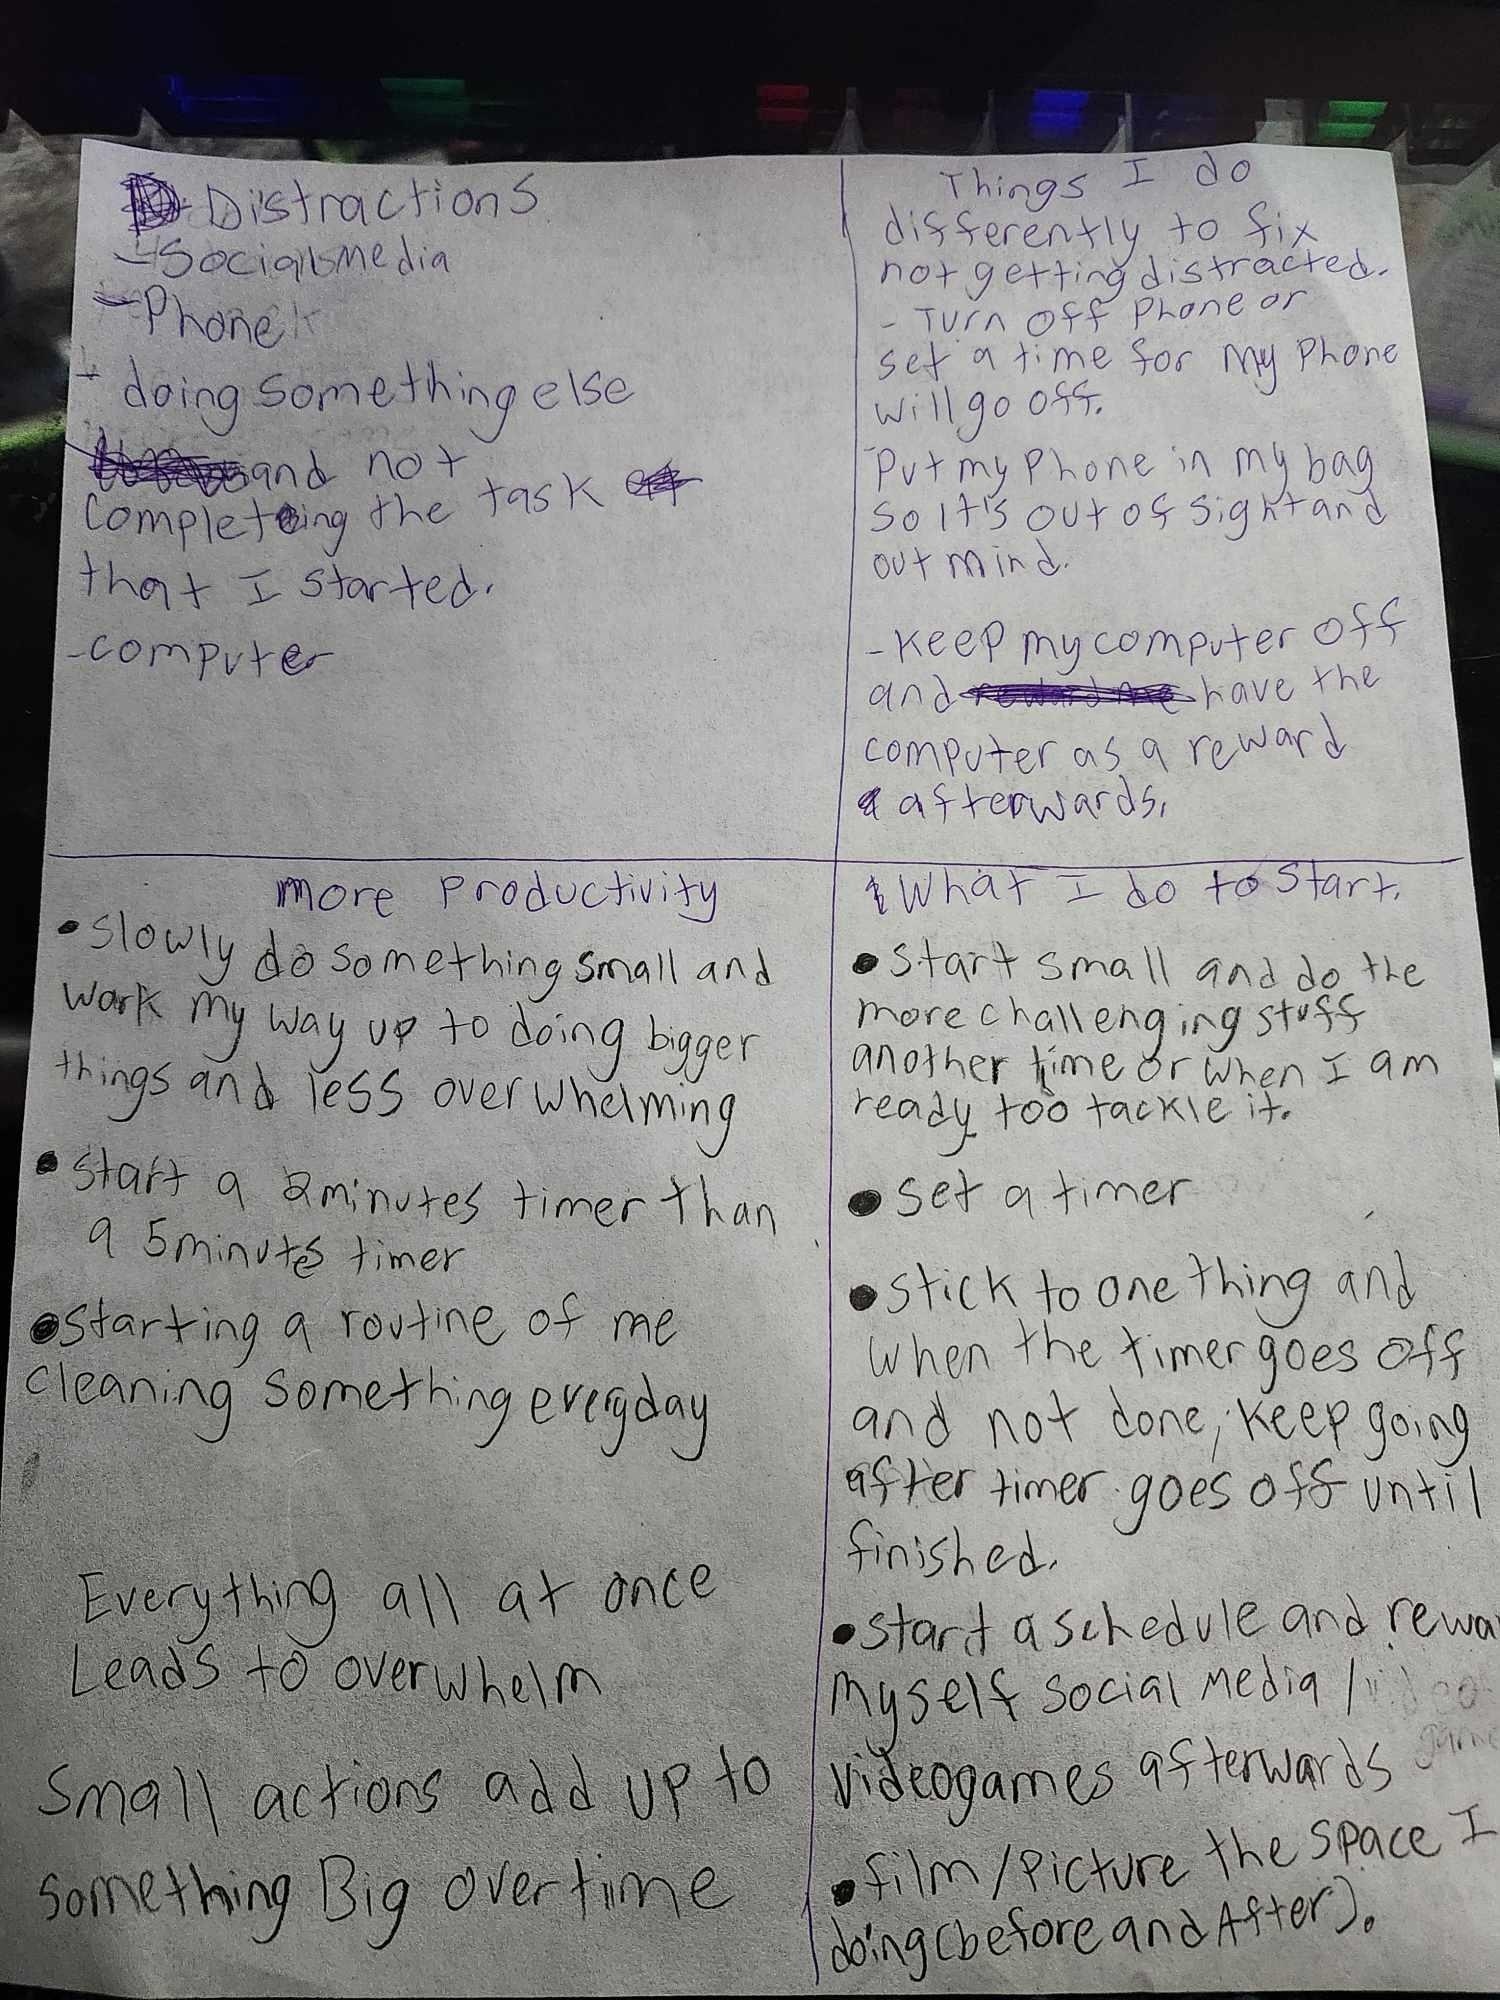 Distractions
- Social media
- Phone
- doing something else
and not
completing the task
that I started.
- computer
Things I do
differently to fix
not getting distracted.
- Turn off Phone or
set a time for my Phone
will go off.
- Put my Phone in my bag
so It's out of sight and
out mind.
- Keep my computer off
and have the
computer as a reward
afterwards.
more Productivity
• Slowly do something small and
work my way up to doing bigger
things and less overwhelming
• start a 2minutes timer than
a 5minutes timer
• starting a routine of me
cleaning something everyday
Everything all at once
Leads to overwhelm
Small actions add up to
something Big overtime
What I do to start.
• start small and do the
more challenging stuff
another time or when I am
ready too tackle it.
• set a timer
• stick to one thing and
when the timer goes off
and not done, keep going
after timer goes off until
finished.
• start a schedule and rewa
myself social media /
videogames afterwards
• film/picture the space I
doing (before and After).